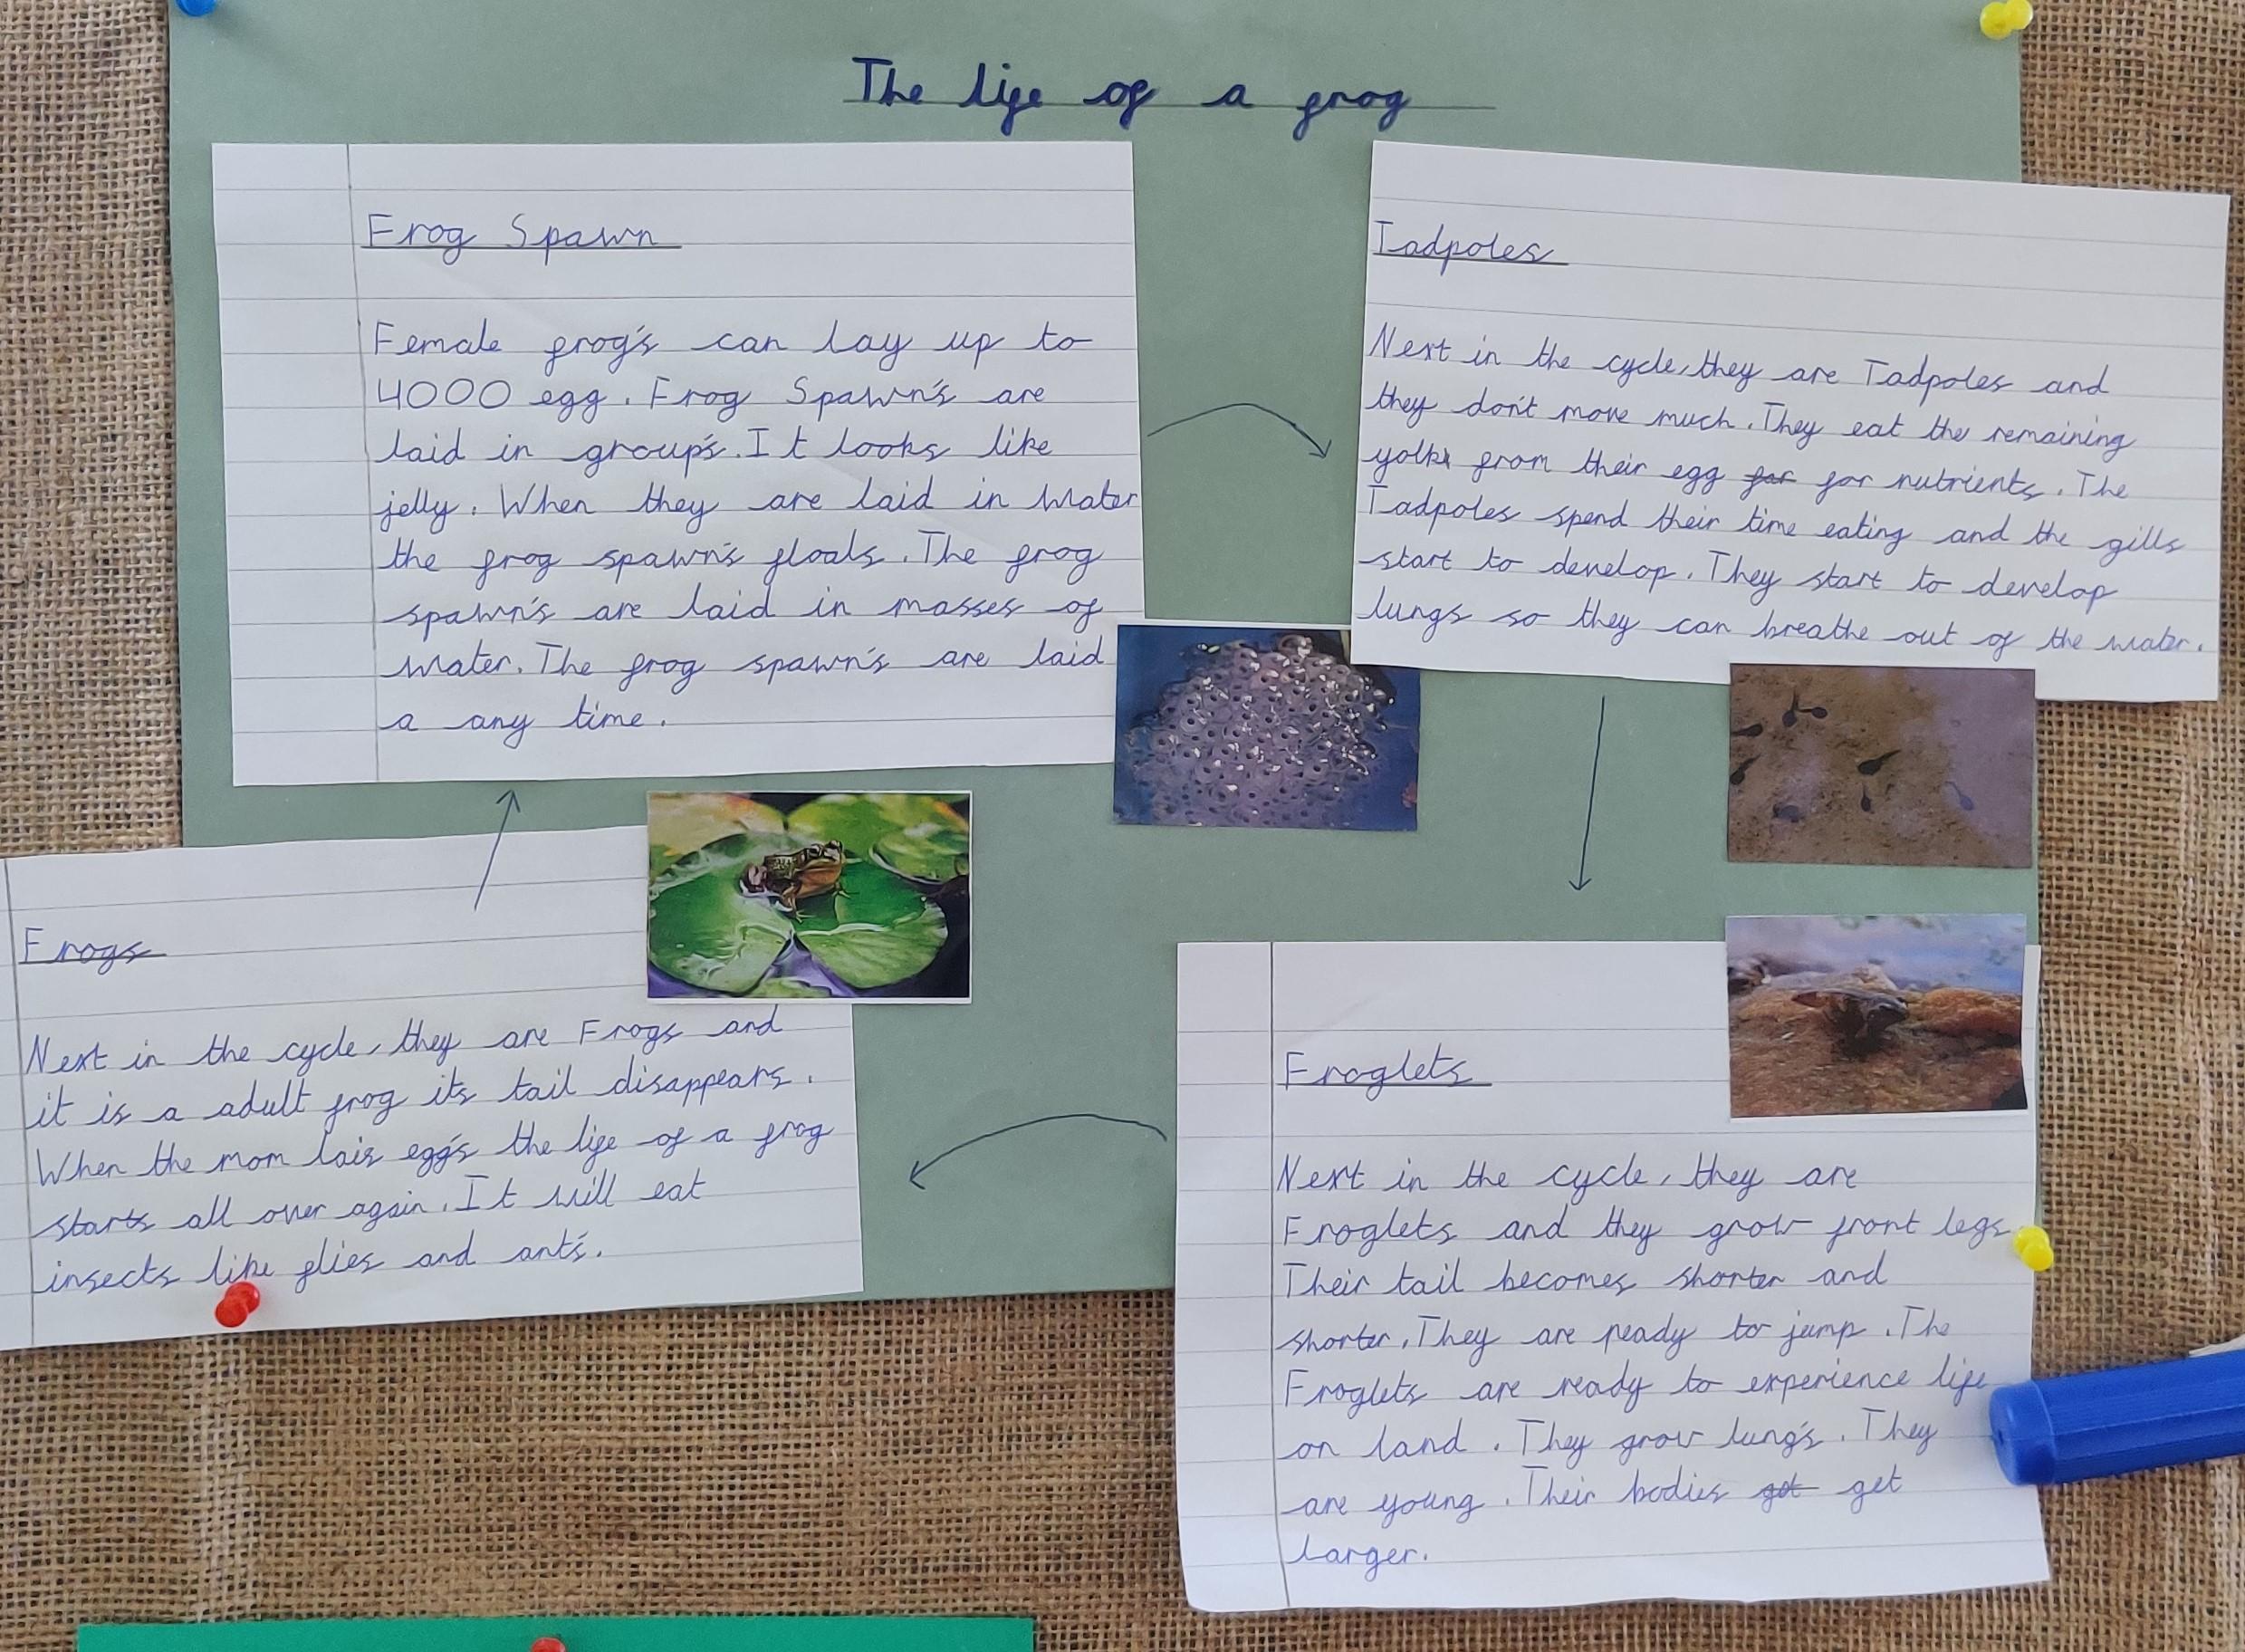 The life of a frog
Frog Spawn
Female frog's can lay up to
4000 egg. Frog Spawn's are
laid in group's. It looks like
jelly. When they are laid in water
the frog spawn's floats. The frog
spawn's are laid in masses of
water. The frog spawn's are laid
a any time.
Tadpoles
Next in the cycle, they are Tadpoles and
they don't move much. They eat the remaining
yolk from their egg for for nutrients. The
Tadpoles spend their time eating and the gills
start to develop. They start to develop
lungs so they can breathe out of the water.
Froglets
Next in the cycle, they are
Froglets and they grow front legs.
Their tail becomes shorter and
shorter. They are ready to jump. The
Froglets are ready to experience life
on land. They grow lung's. They
are young. Their bodies got get
larger.
Frogs
Next in the cycle, they are Frogs and
it is a adult frog its tail disappears.
When the mom lais egg's the life of a frog
starts all over again. It will eat
insects like flies and ant's.